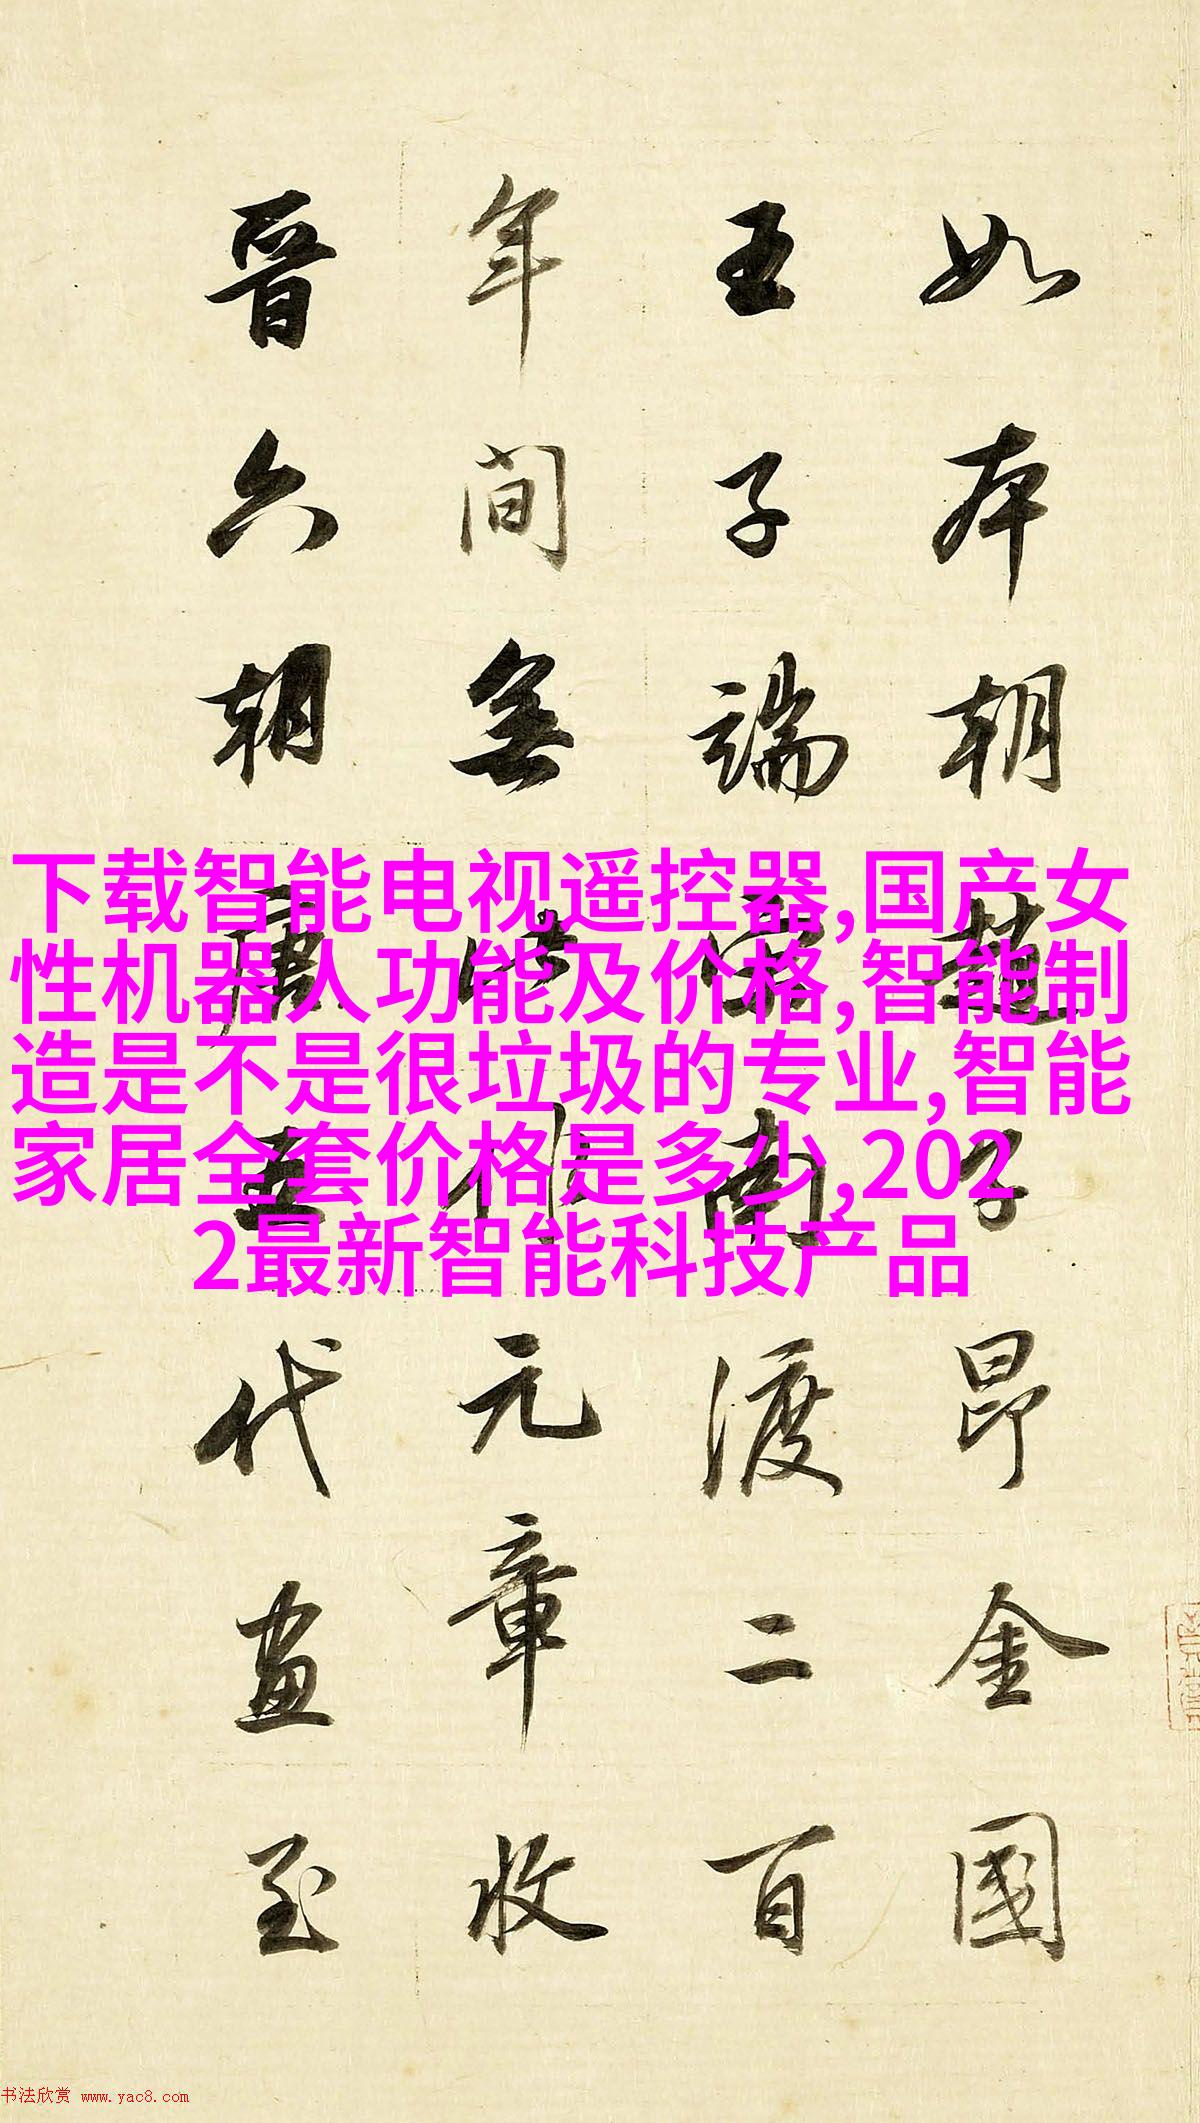 如本朝趙子昂金國
王子端宋南渡二百
年間無此元章收
晉六朝唐五代畫至
下载智能电视遥控器,国产女
性机器人功能及价格,智能制
造是不是很垃圾的专业,智能
家居全套价格是多少,202
2最新智能科技产品
书法欣赏 www.yac8.com